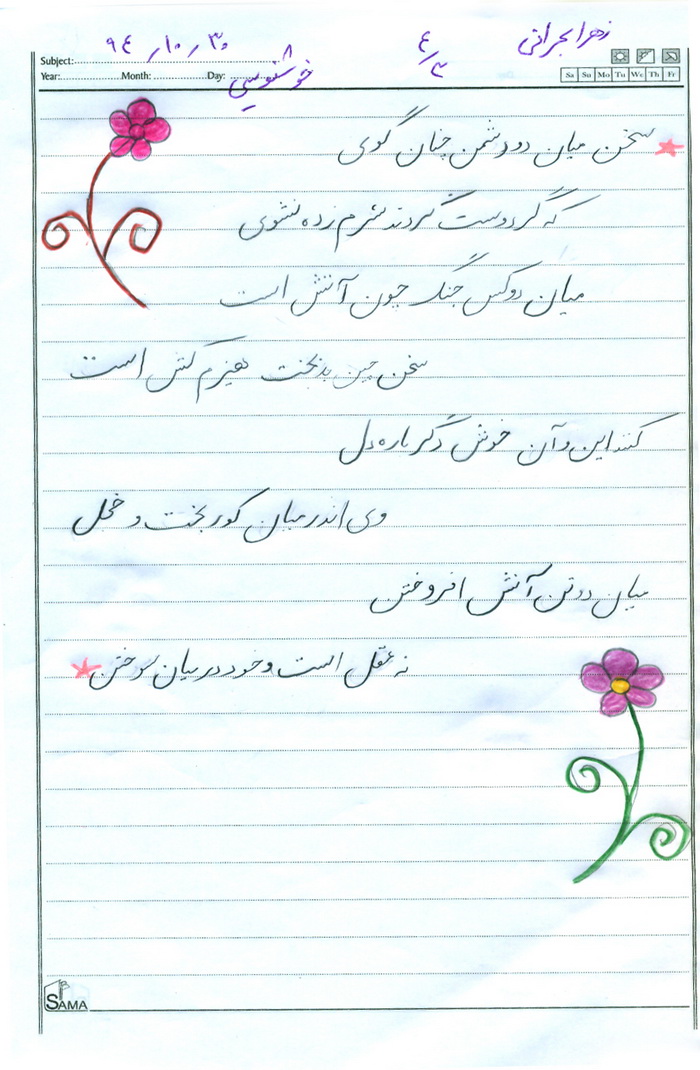 زهرا بحرانی
۴/۳
۹۴/۱۰/۳۰
Subject:
خوشنویسی
Year: Month: Day:
Sa Su Mo Tu We Th Fr
سخن میان دو دشمن چنان گوی
که گر دوست گردند شرم زده نشوی
میان دو کس جنگ چون آتش است
سخن چین بدبخت هیزم کش است
کنند این و آن خوش دگر باره دل
وی اندر میان کور بخت و خجل
میان دو تن آتش افروختن
نه عقل است و خود در میان سوختن
SAMA